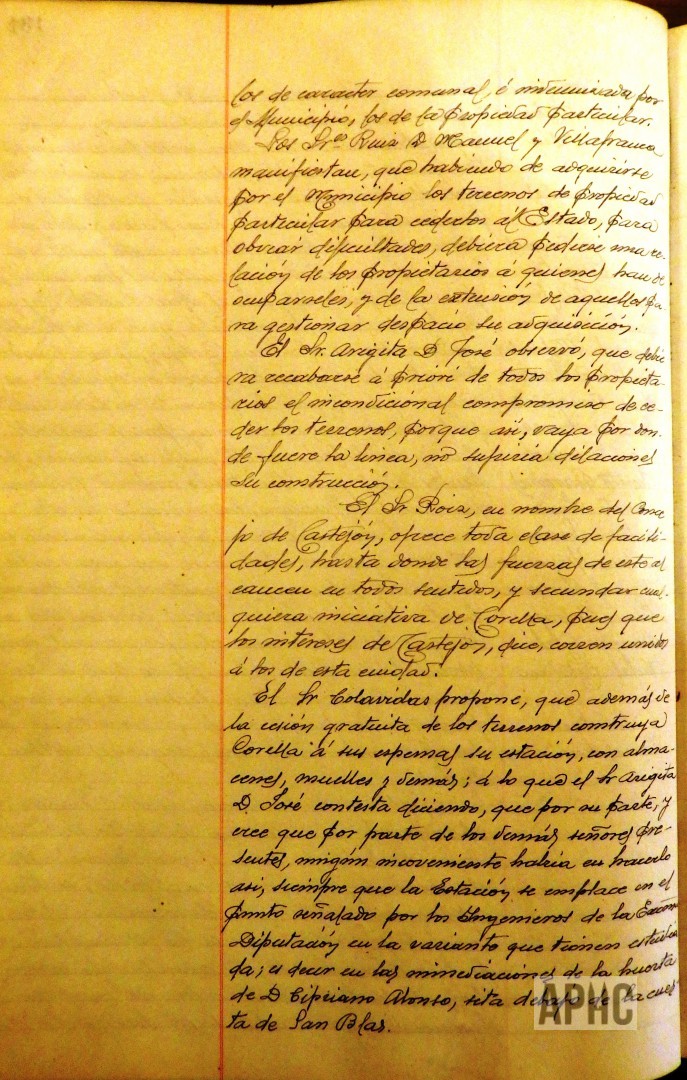 los de caracter comunal, é indemnizada por
el Municipio, los de la propiedad particular.
Los Sres Ruiz D Manuel y Villafranca
manifiestan, que habiendo de adquirirse
por el Municipio los terrenos de propiedad
particular para cederlos al Estado, para
obviar dificultades, debiera pedirse una re-
lación de los propietarios á quienes han de
ocuparseles, y de la extensión de aquellos pa-
ra gestionar despacio su adquisición.
El Sr. Arigita D José observó, que debie
ra recabarse á priori de todos los propieta-
rios el incondicional compromiso de ce-
der los terrenos, porque asi, vaya por don-
de fuere la linea, no sufriria dilaciones
su construcción.
El Sr Roiz, en nombre del Conce
jo de Castejón, ofrece toda clase de facili-
dades, hasta donde las fuerzas de este al
cancen en todos sentidos, y secundar cual-
quiera iniciativa de Corella, pues que
los intereses de Castejón, dice, corren unidos
á los de esta ciudad.
El Sr Colavidas propone, que además de
la cesión gratuita de los terrenos construya
Corella á sus expensas su estación, con alma-
cenes, muelles y demás; á lo que el Sr Arigita
D. José contesta diciendo, que por su parte, y
cree que por parte de los demás señores pre-
sentes, ningún inconveniente habria en hacerlo
asi, siempre que la Estación se emplace en el
punto señalado por los Ingenieros de la Excma
Diputación en la variante que tienen estudia
da; es decir en las inmediaciones de la huerta
de D Cipriano Alonso, sita debajo de la cues
ta de San Blas.
APHC